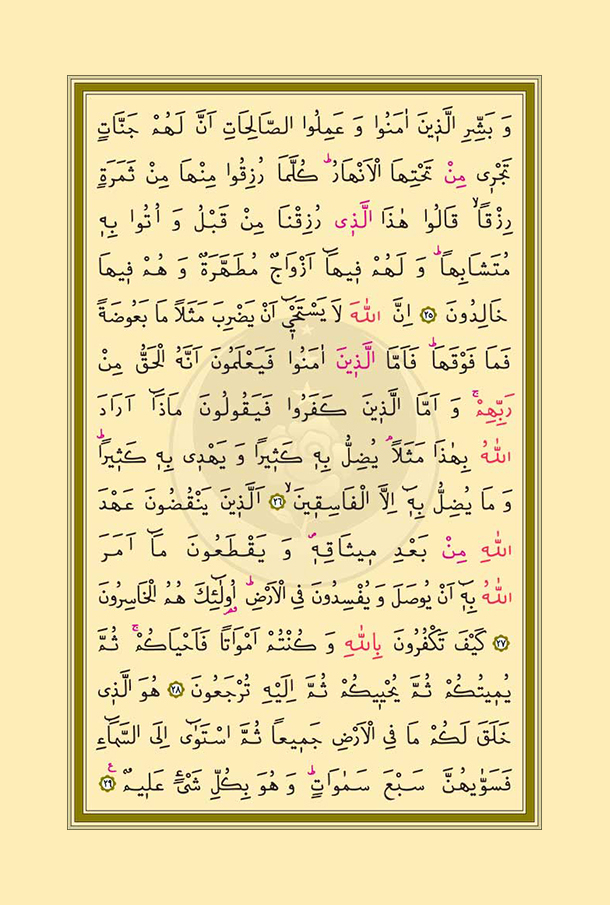 وَ بَشِّرِ الَّذ۪ينَ اٰمَنُوا وَ عَمِلُوا الصَّالِحَاتِ اَنَّ لَهُمْ جَنَّاتٍ
تَجْر۪ى مِنْ تَحْتِهَا الْاَنْهَارُۜ كُلَّمَا رُزِقُوا مِنْهَا مِنْ ثَمَرَةٍ
رِزْقاًۙ قَالُوا هٰذَا الَّذ۪ى رُزِقْنَا مِنْ قَبْلُ وَ اُتُوا بِه۪
مُتَشَابِهاًۜ وَ لَهُمْ ف۪يهَٓا اَزْوَاجٌ مُطَهَّرَةٌ وَ هُمْ ف۪يهَا
خَالِدُونَ ﴿٢٥﴾ اِنَّ اللّٰهَ لَا يَسْتَحْي۪ٓ اَنْ يَضْرِبَ مَثَلاً مَا بَعُوضَةً
فَمَا فَوْقَهَاۜ فَاَمَّا الَّذ۪ينَ اٰمَنُوا فَيَعْلَمُونَ اَنَّهُ الْحَقُّ مِنْ
رَبِّهِمْۚ وَ اَمَّا الَّذ۪ينَ كَفَرُوا فَيَقُولُونَ مَاذَٓا اَرَادَ
اللّٰهُ بِهٰذَا مَثَلاًۢ يُضِلُّ بِه۪ كَث۪يراً وَ يَهْد۪ى بِه۪ كَث۪يراًۜ
وَ مَا يُضِلُّ بِه۪ٓ اِلَّا الْفَاسِق۪ينَۙ ﴿٢٦﴾ اَلَّذ۪ينَ يَنْقُضُونَ عَهْدَ
اللّٰهِ مِنْ بَعْدِ م۪يثَاقِه۪ۖ وَ يَقْطَعُونَ مَٓا اَمَرَ
اللّٰهُ بِه۪ٓ اَنْ يُوصَلَ وَ يُفْسِدُونَ فِى الْاَرْضِۜ اُولٰٓئِكَ هُمُ الْخَاسِرُونَ
﴿٢٧﴾ كَيْفَ تَكْفُرُونَ بِاللّٰهِ وَ كُنْتُمْ اَمْوَاتاً فَاَحْيَاكُمْۚ ثُمَّ
يُم۪يتُكُمْ ثُمَّ يُحْي۪يكُمْ ثُمَّ اِلَيْهِ تُرْجَعُونَ ﴿٢٨﴾ هُوَ الَّذ۪ى
خَلَقَ لَكُمْ مَا فِى الْاَرْضِ جَم۪يعاً ثُمَّ اسْتَوٰٓى اِلَى السَّمَٓاءِ
فَسَوّٰيهُنَّ سَبْعَ سَمٰوَاتٍۜ وَ هُوَ بِكُلِّ شَىْءٍ عَل۪يمٌ ﴿٢٩﴾ ع